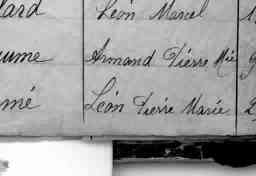 lard Léon Marcel 1
aume Armand Pierre Mie 9
mé Léon Pierre Marie 2